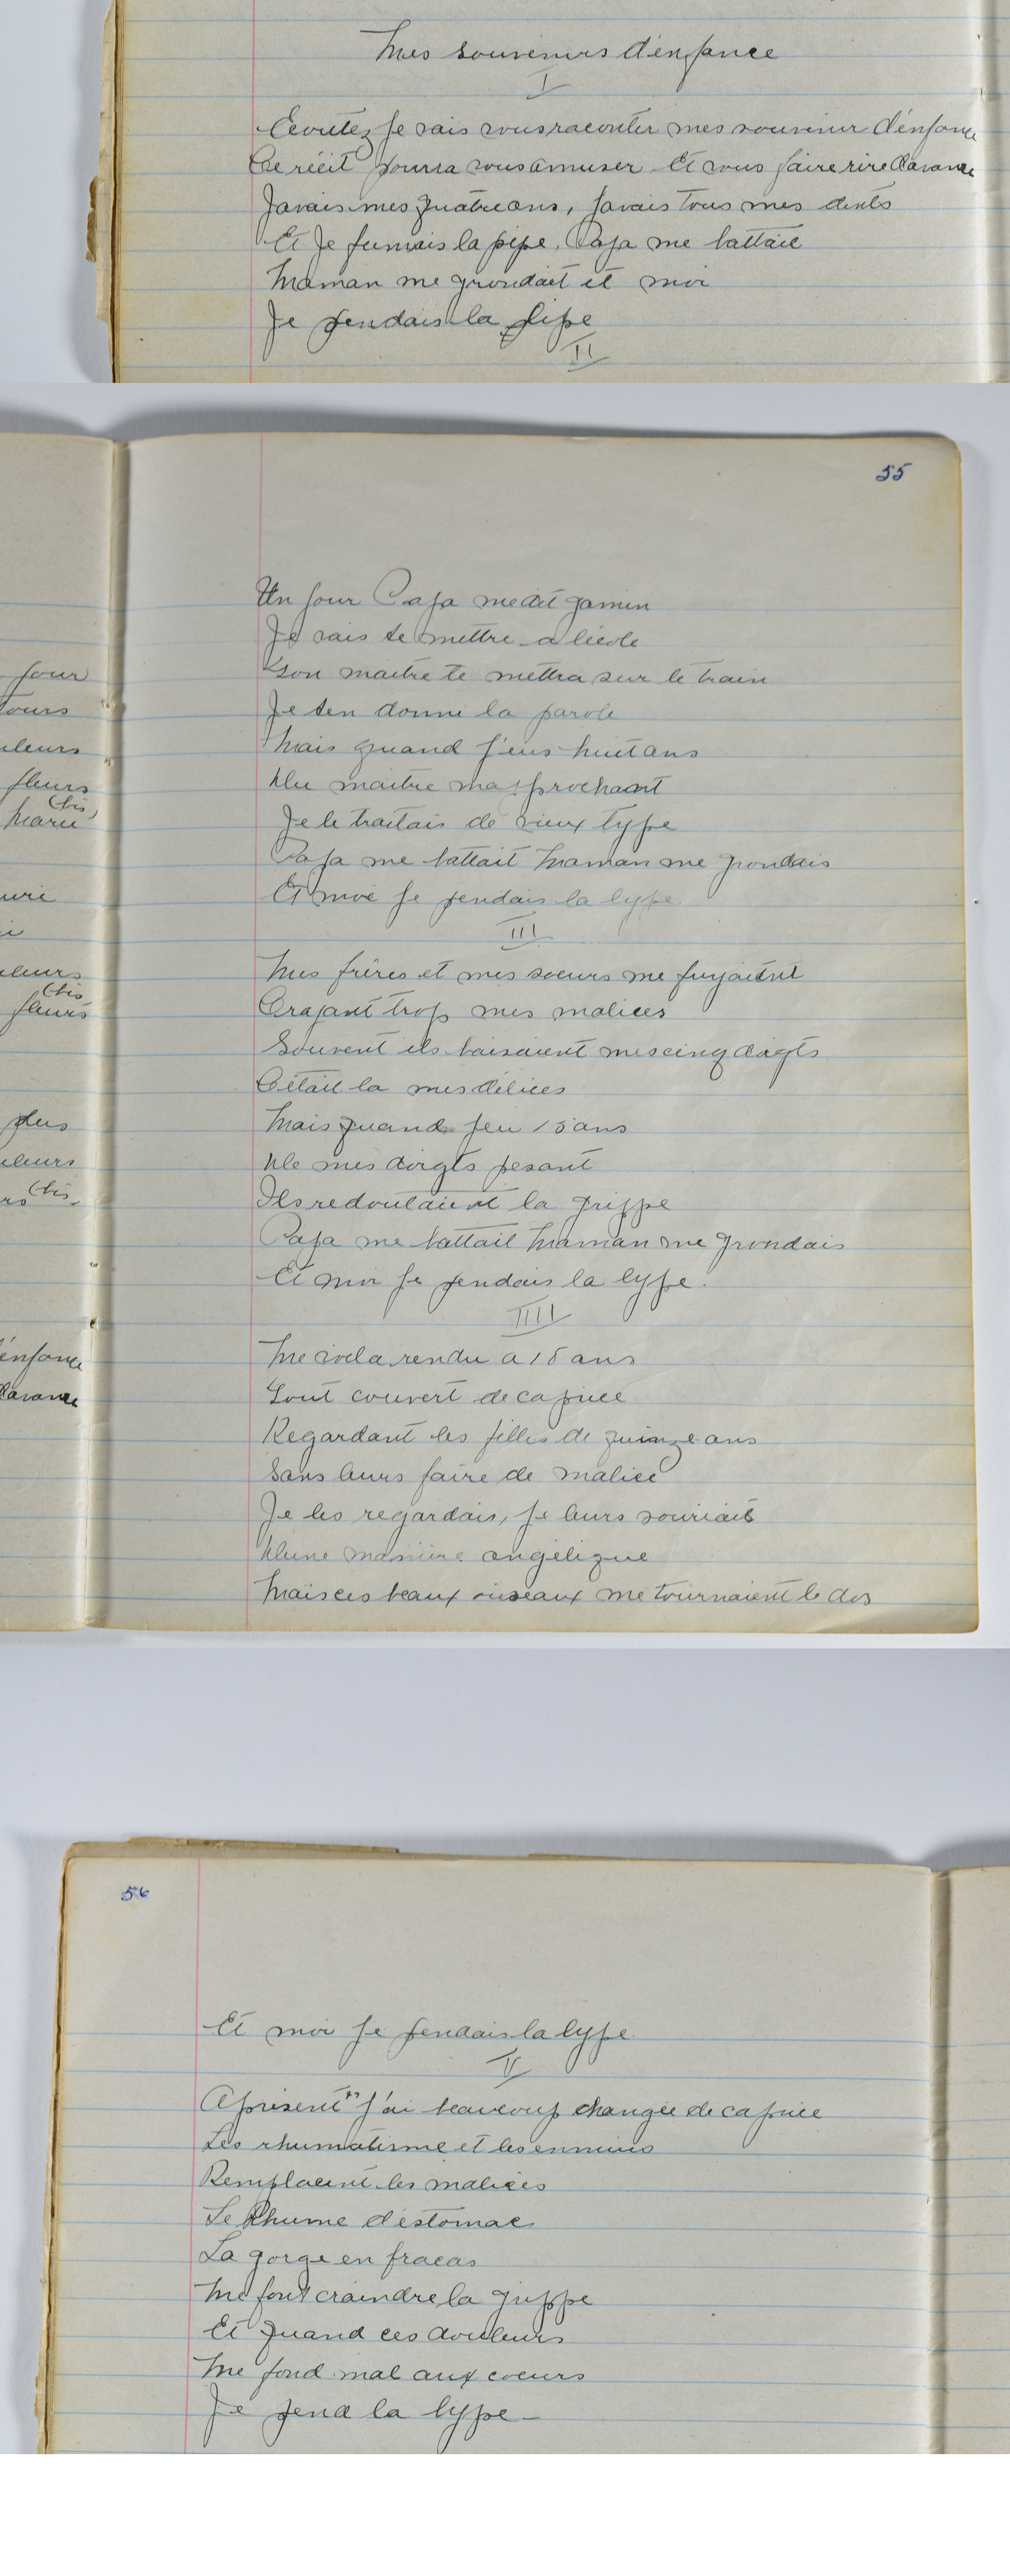 Mes souvenirs d'enfance
I
Ecoutez je vais vous raconter mes souvenir d'enfance
Ce récit pourra vous amuser Et vous faire rire d'avance
Javais mes quatre ans, javais tous mes dents
Et Je fumais la pipe, Papa me battait
Maman me grondait et moi
Je fendais la lipe
II
55
Un jour Papa me dit gamin
Je vais te mettre a l'école
Ton maitre te mettra sur le train
Je ten donne la parole
Mais quand j'eus huit ans
Du maitre ma prochant
Je le traitais de vieux type
Papa me battait Maman me grondais
Et moi je fendais la lype
III
Mes frères et mes soeurs me fuyaient
Crajant trop mes malices
Souvent ils baisaient mes cinq doigts
Cétait la mes délices
Mais quand jeu 15 ans
De mes doigts pesant
Ils redoutaient la grippe
Papa me battait Maman me grondais
Et moi je fendais la lype.
IIII
Me voila rendu a 18 ans
Tout couvert de caprice
Regardant les filles de quinze ans
Sans leurs faire de malice
Je les regardais, je leurs souriais
D'une manière angélique
Mais ces beaux oiseaux me tournaient le dos
jour
leurs
fleurs
(bis)
Marie
leurs
(bis
fleurs
plus
leurs
(bis
d'énfance
d'avance
56
Et moi je fendais la lype
V
A présent j'ai beaucoup changée de caprice
Les rhumatisme et les ennuis
Remplacent les malices
Le Rhume d'estomac
La gorge en fracas
Me font craindre la grippe
Et quand ces douleurs
Me fond mal aux coeurs
Je fend la lype